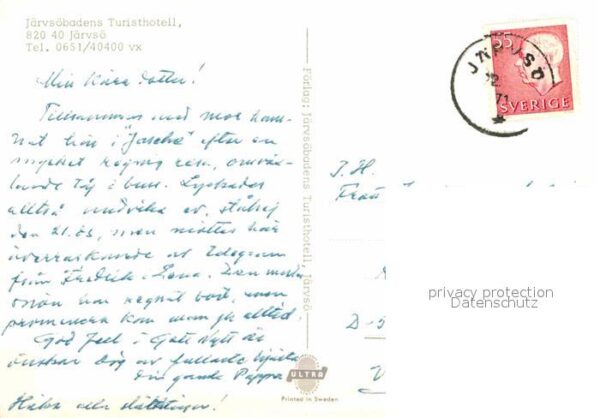 Järvsöbadens Turisthotell,
820 40 Järvsö
Tel. 0651/40400 vx
Min kära dotter!
Tillsammans med mor har
här i "Järvsö" efter en
mycket regnig resa, omväx-
lande tåg o buss. Lyckades
alltså undvika ev. ståhej
den 21.ds, men möttes här
överraskande av telegram
från Fredrik - Lena. Den mesta
snön har regnat bort, men
promenera kan man ju alltid.
God Jul o Gott Nytt År
önskar Dig av fullaste hjärta
Din gamle Pappa
Hälsa alla släktingar!
Förlag: Järvsöbadens Turisthotell, Järvsö
ULTRA
Printed in Sweden
55
SVERIGE
JÄRVSÖ
T.H.
Frau
D-5
privacy protection
Datenschutz